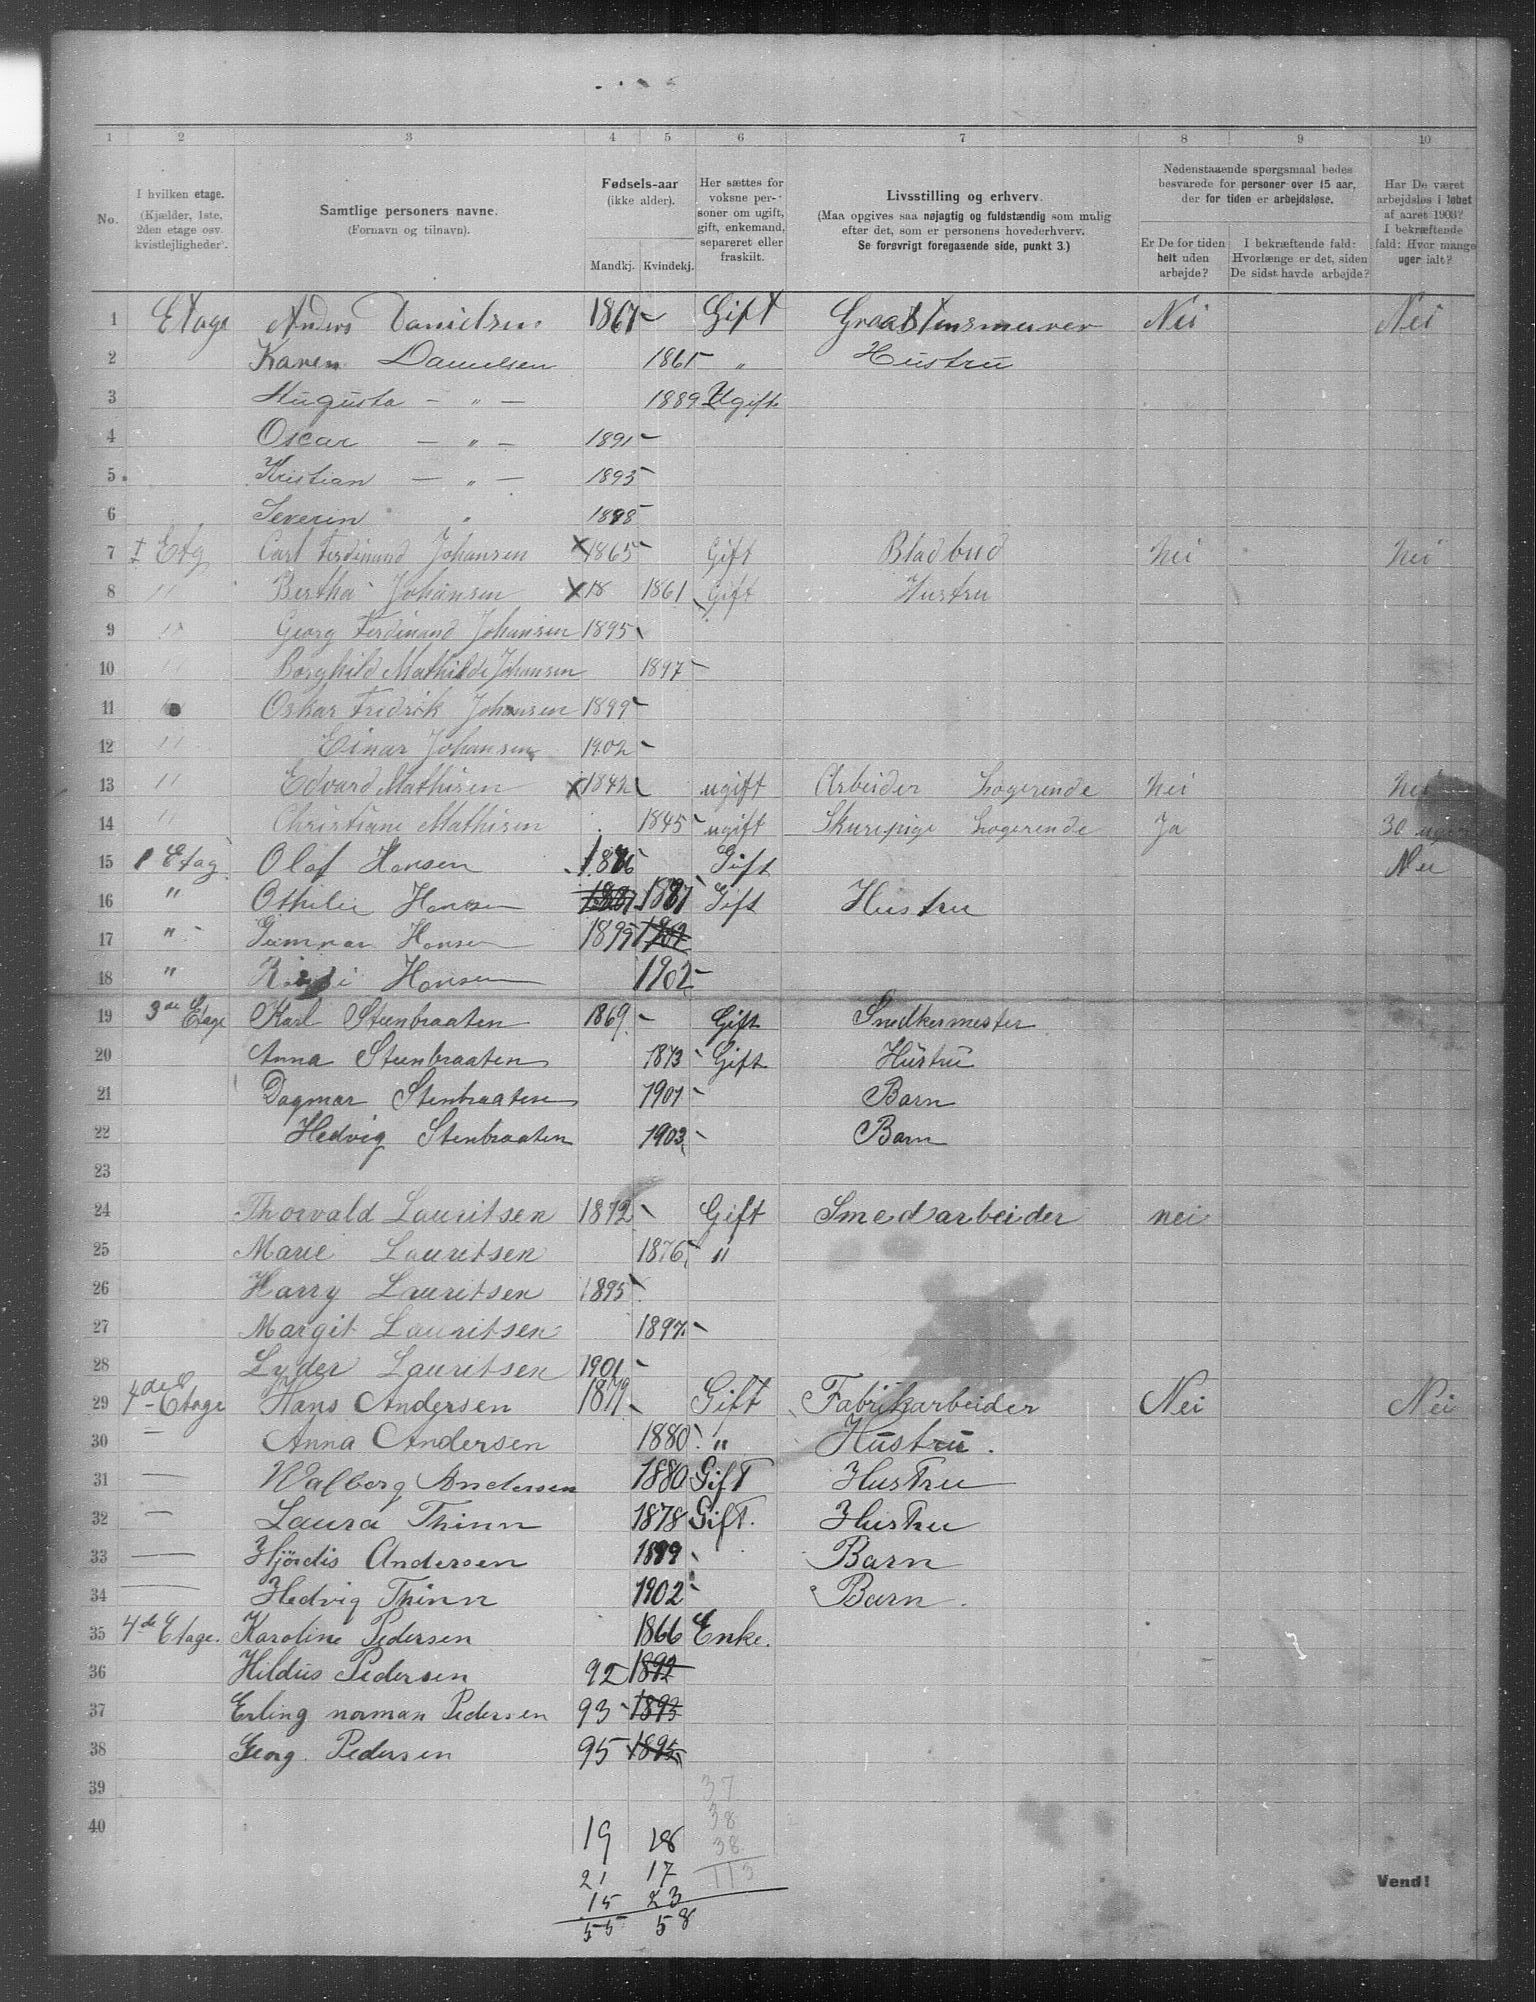 1 2 3 4 5 6 7 8 9 10
No.
I hvilken etage.
(Kjælder, 1ste, 2den etage osv. kvistlejligheder).
Samtlige personers navne.
(Fornavn og tilnavn).
Fødsels-aar
(ikke alder).
Mandkj. Kvindekj.
Her sættes for voksne personer om ugift, gift, enkemand, separeret eller fraskilt.
Livsstilling og erhverv.
(Maa opgives saa nøjagtig og fuldstændig som mulig efter det, som er personens hovederhverv.
Se forøvrigt foregaaende side, punkt 3.)
Nedenstaaende spørgsmaal bedes besvarede for personer over 15 aar, der for tiden er arbejdsløse.
Er De for tiden helt uden arbejde?
I bekræftende fald: Hvorlænge er det, siden De sidst havde arbejde?
Har De været arbejdsløs i løbet af aaret 1903? I bekræftende fald: Hvor mange uger ialt?
1 Etage Anders Danielsen 1867 Gift Graastensmurer Nei Nei
2 Karen Danielsen 1865 " Hustru
3 Augusta — " — 1889 Ugift
4 Oscar — " — 1891
5 Kristian — " — 1893
6 Severin " 1898
7 I Etg Carl Ferdinand Johansen X 1865 Gift Bladbud Nei Nei
8 " Bertha Johansen X 18 1861 Gift Hustru
9 " Georg Ferdinand Johansen 1895
10 " Borghild Mathilde Johansen 1897
11 Oskar Fredrik Johansen 1899
12 " Einar Johansen 1902
13 " Edvard Mathisen X 1842 ugift Arbeider Logerende Nei Nei
14 " Christiane Mathisen 1845 ugift Skurepige Logerende Ja 30 uger
15 1 Etag Olaf Hansen 1876 Gift Nei
16 " Othilie Hansen 1881 Gift Hustru
17 " Gunnar Hansen 1899 1902
18 " Hansen 1902
19 3de Etage Karl Steenbraaten 1869 Gift Snedkermester
20 Anna Steenbraaten 1873 Gift Hustru
21 Dagmar Stenbraaten 1901 Barn
22 Hedvig Stenbraaten 1903 Barn
23
24 Thorvald Lauritsen 1872 Gift Smedarbeider nei
25 Marie Lauritsen 1876 "
26 Harry Lauritsen 1895
27 Margit Lauritsen 1897
28 Lyder Lauritsen 1901
29 4de Etage Hans Andersen 1879 Gift Fabrikarbeider Nei Nei
30 — Anna Andersen 1880 " Hustru.
31 — Walborg Andersen 1880 Gift Hustru
32 — Laura Thinn 1878 Gift. Hustru
33 — Hjördis Andersen 1899 Barn
34 — Hedvig Thinn 1902 Barn.
35 4de Etage. Karoline Pedersen 1866 Enke.
36 Hildus Pedersen 92 1892
37 Erling norman Pedersen 93 1893
38 Georg. Pedersen 95 1895
39 37
40 38
19 18 38
21 17 113
15 23
55 58
Vend!